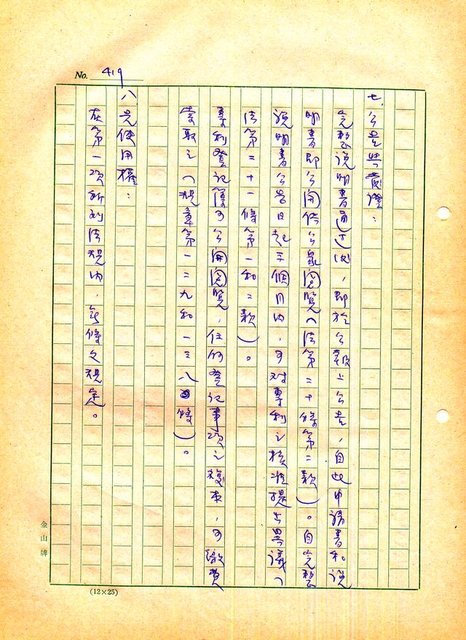 No. 419
七、公告與異議：
完整說明書通過以後，即於公報上公告，自此申請書和說
明書即公開供公眾閱覽（法第二十條第二款）。自完整
說明書公告日起三個月內，可對專利之核准提出異議（
法第二十一條第一和二款）。
專利登記簿可公開閱覽，任何登記事項之複本，可繳費
索取之（規章第一二九和一三八條）。
八、先使用權：
在第一次新利法規內，無條文規定。
金山牌
(12×25)